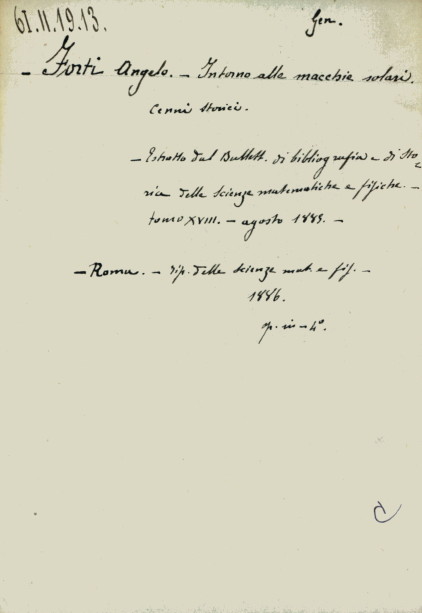 61.II.19.13.
Gen.
- Forti Angelo. - Intorno alle macchie solari.
Cenni storici.
- Estratto dal Bullett. di bibliografia e di Sto=
ria delle scienze matematiche e fisiche. -
tomo XVIII. - agosto 1885. -
- Roma. - tip. delle scienze mat. e fis. -
1886.
op. in-4°.